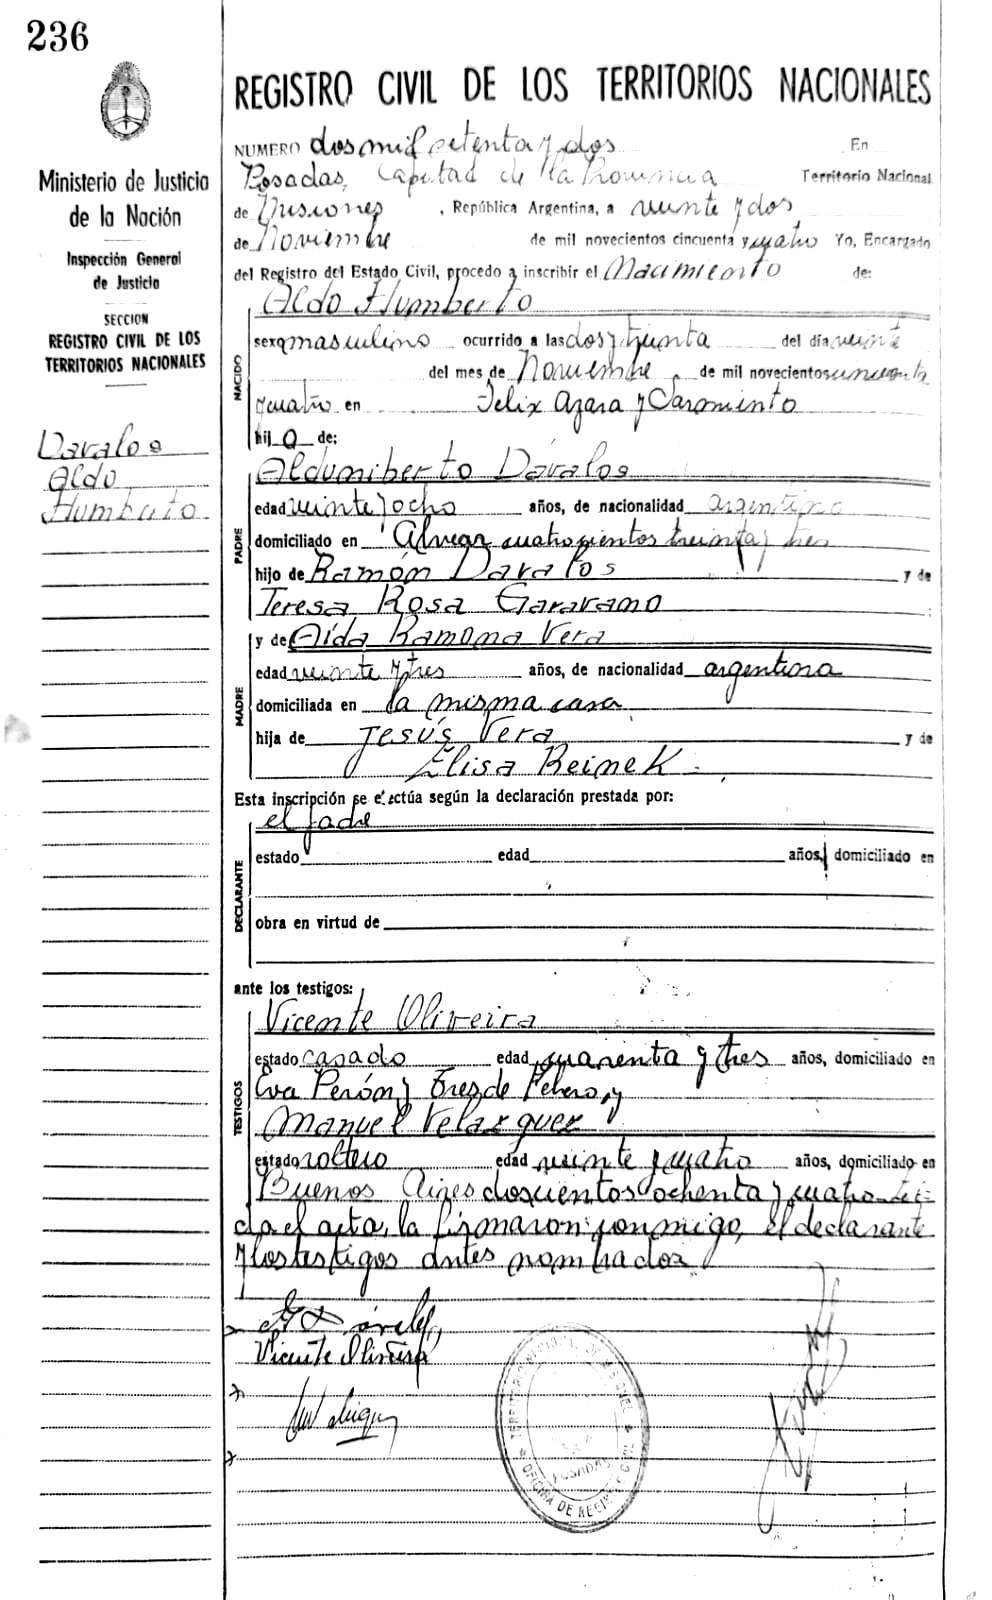 236
Ministerio de Justicia
de la Nación
Inspección General
de Justicia
SECCION
REGISTRO CIVIL DE LOS
TERRITORIOS NACIONALES
Davalos
Aldo
Humberto
REGISTRO CIVIL DE LOS TERRITORIOS NACIONALES
NUMERO dos mil setenta y dos En
Posadas, Capital de la Provincia Territorio Nacional
de Misiones, República Argentina, a veinte y dos
de Noviembre de mil novecientos cincuenta y cuatro Yo, Encargado
del Registro del Estado Civil, procedo a inscribir el Nacimiento de:
Aldo Humberto
NACIDO
sexo masculino ocurrido a las dos y treinta del día veinte
del mes de Noviembre, de mil novecientos cincuenta
y cuatro en Felix Azara y Sarmiento
hijo de:
PADRE
Aldumiberto Davalos
edad veinte y ocho años, de nacionalidad argentino
domiciliado en Alvear cuatrocientos treinta y tres
hijo de Ramón Davalos y de
Teresa Rosa Garavano
MADRE
y de Aída Ramona Vera
edad veinte y tres años, de nacionalidad argentina
domiciliada en la misma casa
hija de Jesús Vera y de
Elisa Reinek
Esta inscripción se efectúa según la declaración prestada por:
el padre
DECLARANTE
estado edad años, domiciliado en
obra en virtud de
ante los testigos:
TESTIGOS
Vicente Oliveira
estado casado edad cuarenta y tres años, domiciliado en
Eva Perón y Tres de Febrero, y
Manuel Velazquez
estado soltero edad veinte y cuatro años, domiciliado en
Buenos Aires doscientos ochenta y cuatro Leí-
da el acta, la firmaron conmigo, el declarante
y los testigos antes nombrados
Vicente Oliveira
POSADAS
OFICINA DE REGISTRO CIVIL